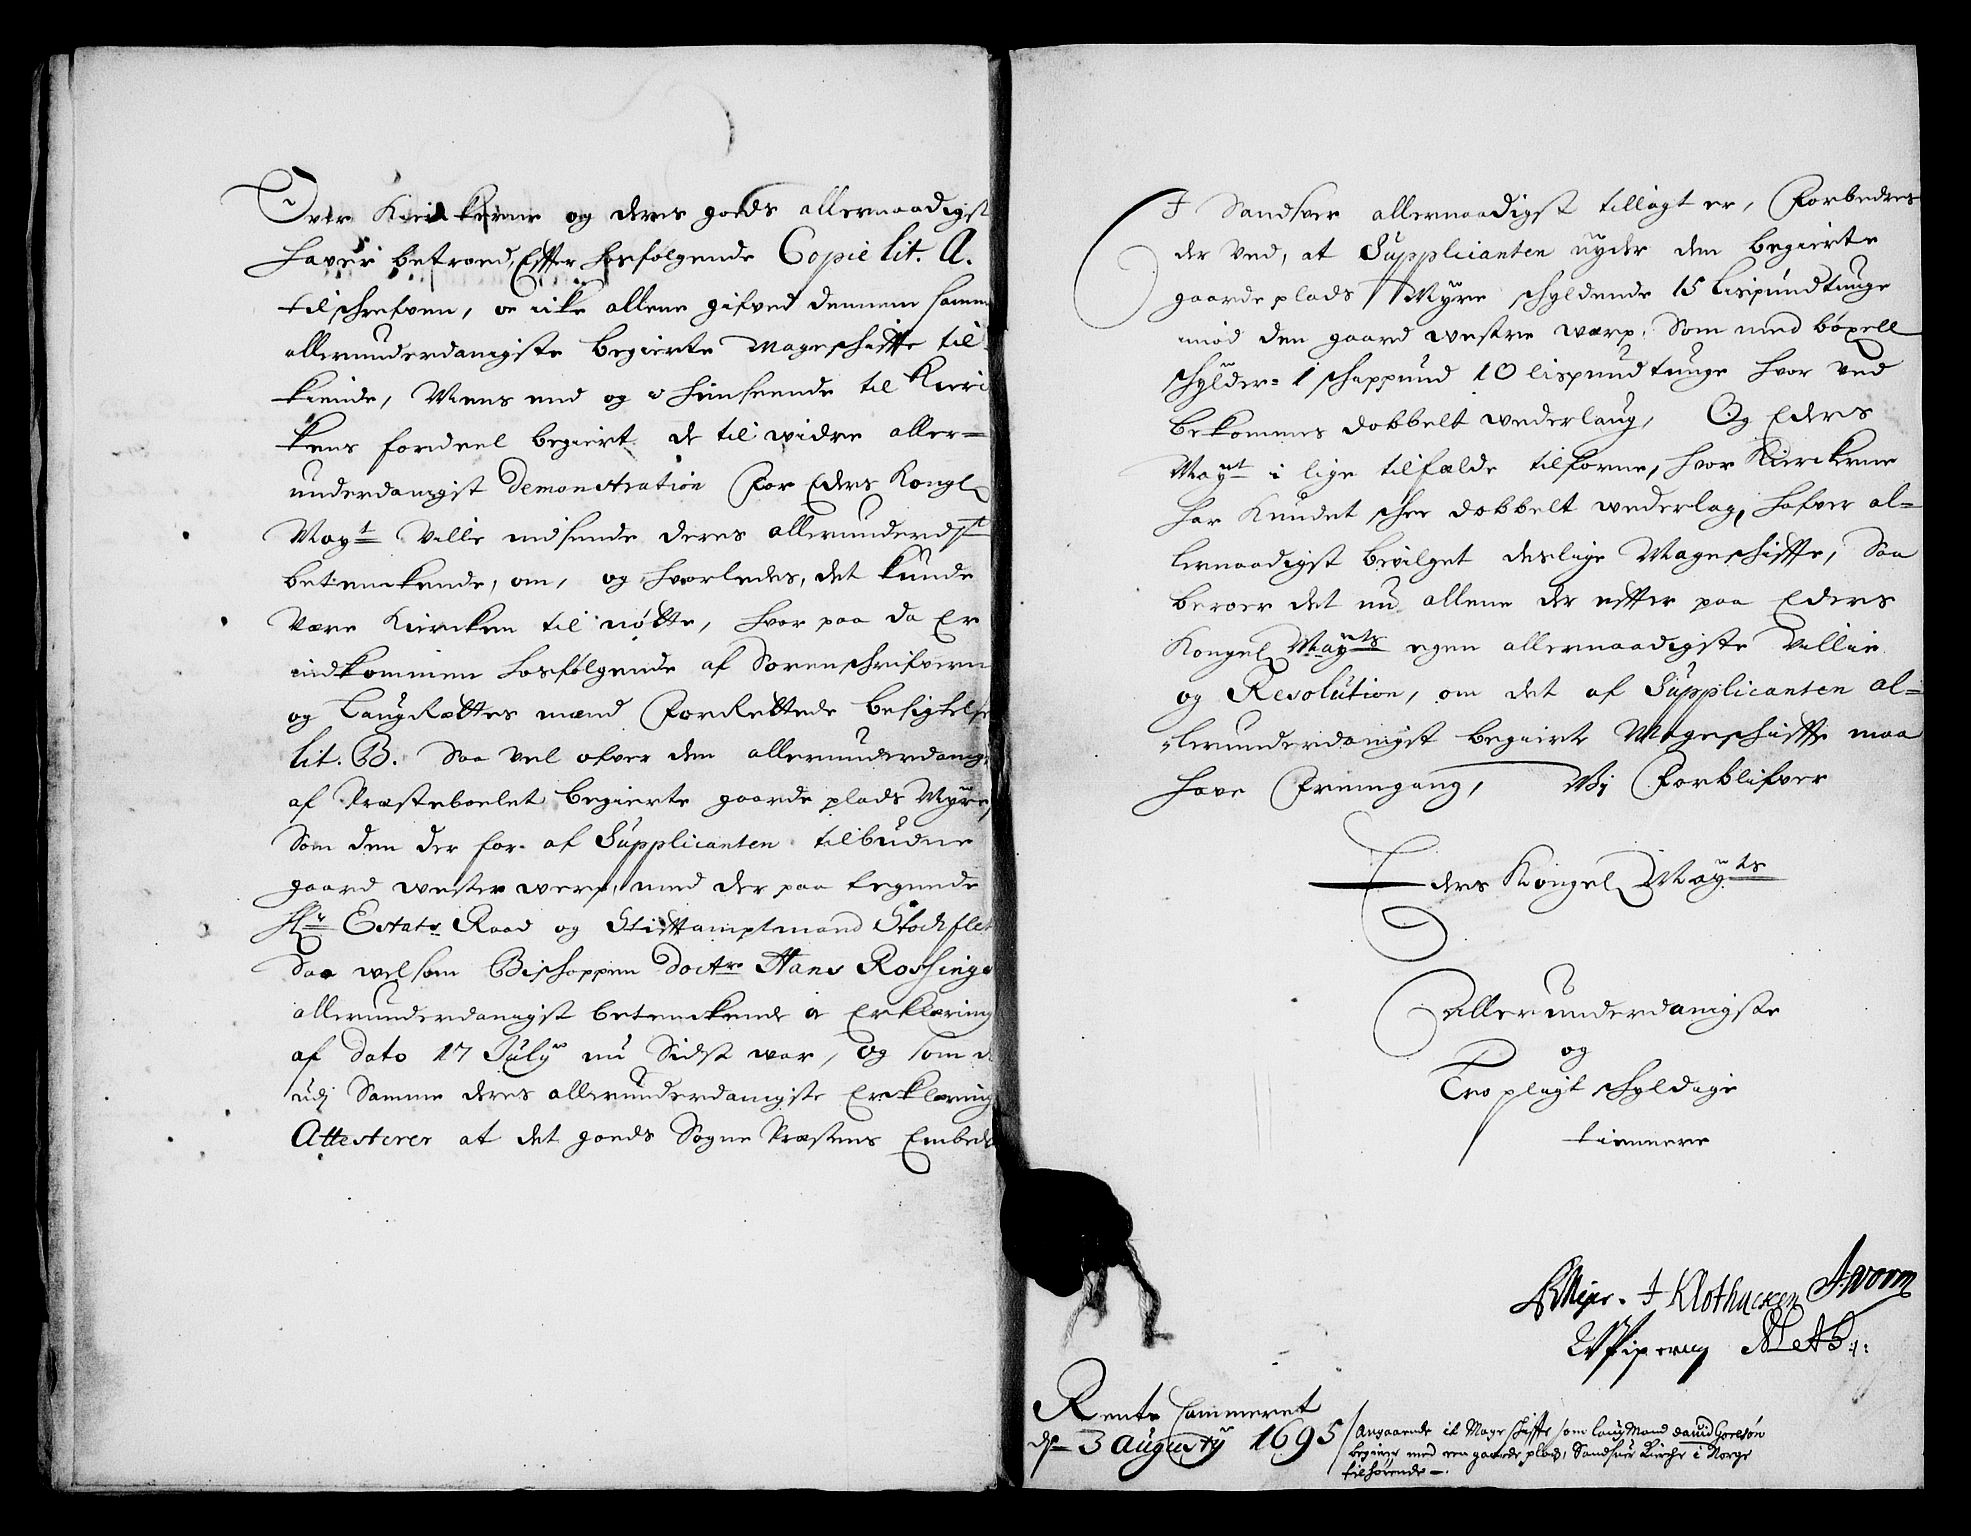 Over Kierkerne og deres goeds allernaadigst
haver betroed, Effter hosfølgende Copie lit. A.
tilschrefven, or icke allene gifved dennem samme
allerunderdanigste begierte Mageschiffte til
kiende, Mens end og i henseende til Kier
kens fordeel begiert de til widre aller=
underdanigst Demonstration for Eders Kongl
Mayt Ville indsende deres allerunderdst
betenckende, om, og hvorledes, det kunde
være Kiercken til nøtte, hvor paa da Er
indkommen hosfølgende af Sorenschrifveren
og LaugRættes mænd ForRettede besigtelse
lit. B. Saa vel ofver den allerunderdanig
af Præsteboelet begierte gaarde plads Myre,
Som den der for af Supplicanten tilbudne
gaard wester werp, med der paa tegnede
Hr Estats Raad og Stifftamptmand Stockflet
Saa welsom Bischoppen Doctr Hans Rosings
allerunderdanigst betenckende oc Erklæring
af dato 17 July nu Sidst war, og som d
udj Samme deres allerunderdanigste Erklæring
Attesterer at det goeds Sogne Præstens Embede
I Sandsver allernaadigst tillagt er, Forbedres
der ved, at Supplicanten nyder den begierte
gaarde plads Myre schyldende 15 Lispund tunge
imod den gaard westre wærp, Som med bøxell
schylder 1 schippund 10 lispund tunge hvor ved
bekommes dobbelt wederlaug, Og Eders
Mayt i lige tilfælde tilforne, hvor Kierckerne
har kundet schee dobbelt wederlag, hafver al=
lernaadigst bevilget deslige Mageschiffte, Saa
beroer det nu allene der effter paa Eders
Kongel Mayts egen allernaadigste Villie
og Resolution, om det af Supplicanten al=
lerunderdanigst begierte Mageschiffte maa
have fremgang, Vi Forblifver
Eders Kongel Mayts
Allerunderdanigste
og
Tro pligt schyldige
tiennere
J Klothuesen J. worm
Rente Cammeret
d 3 Augusty 1695 / Angaaende it Mageschiffte som LaugMand david Goresøn
begierer med een gaarde plads, Sandsuer Kirche i Norge
tilhørende.